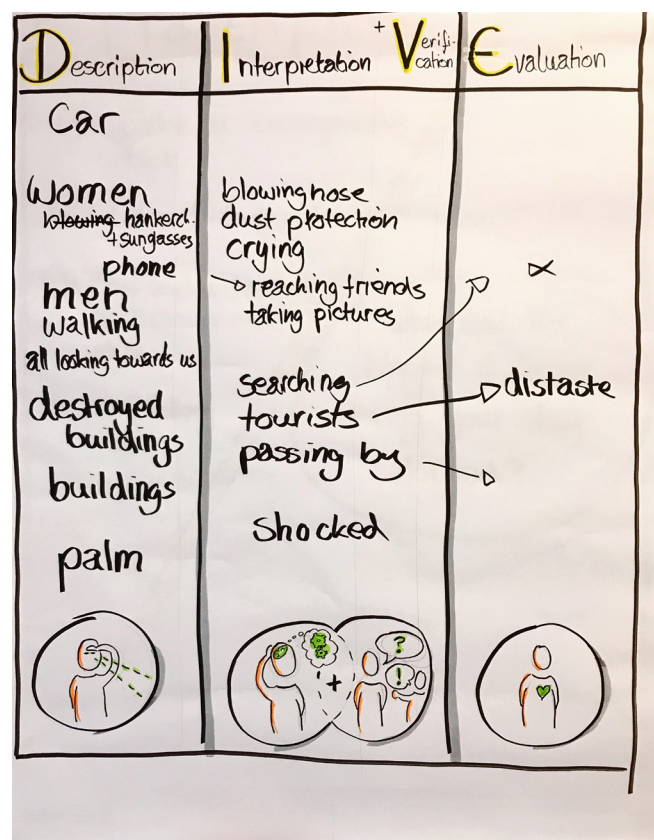 Description
Car
women
blowing hankerch.
+ sungasses
phone
men
walking
all looking towards us
destroyed
buildings
buildings
palm
Interpretation + Verifi-
cation
blowing nose
dust protection
crying
reaching friends
taking pictures
searching
tourists
passing by
shocked
?
+
!
Evaluation
distaste